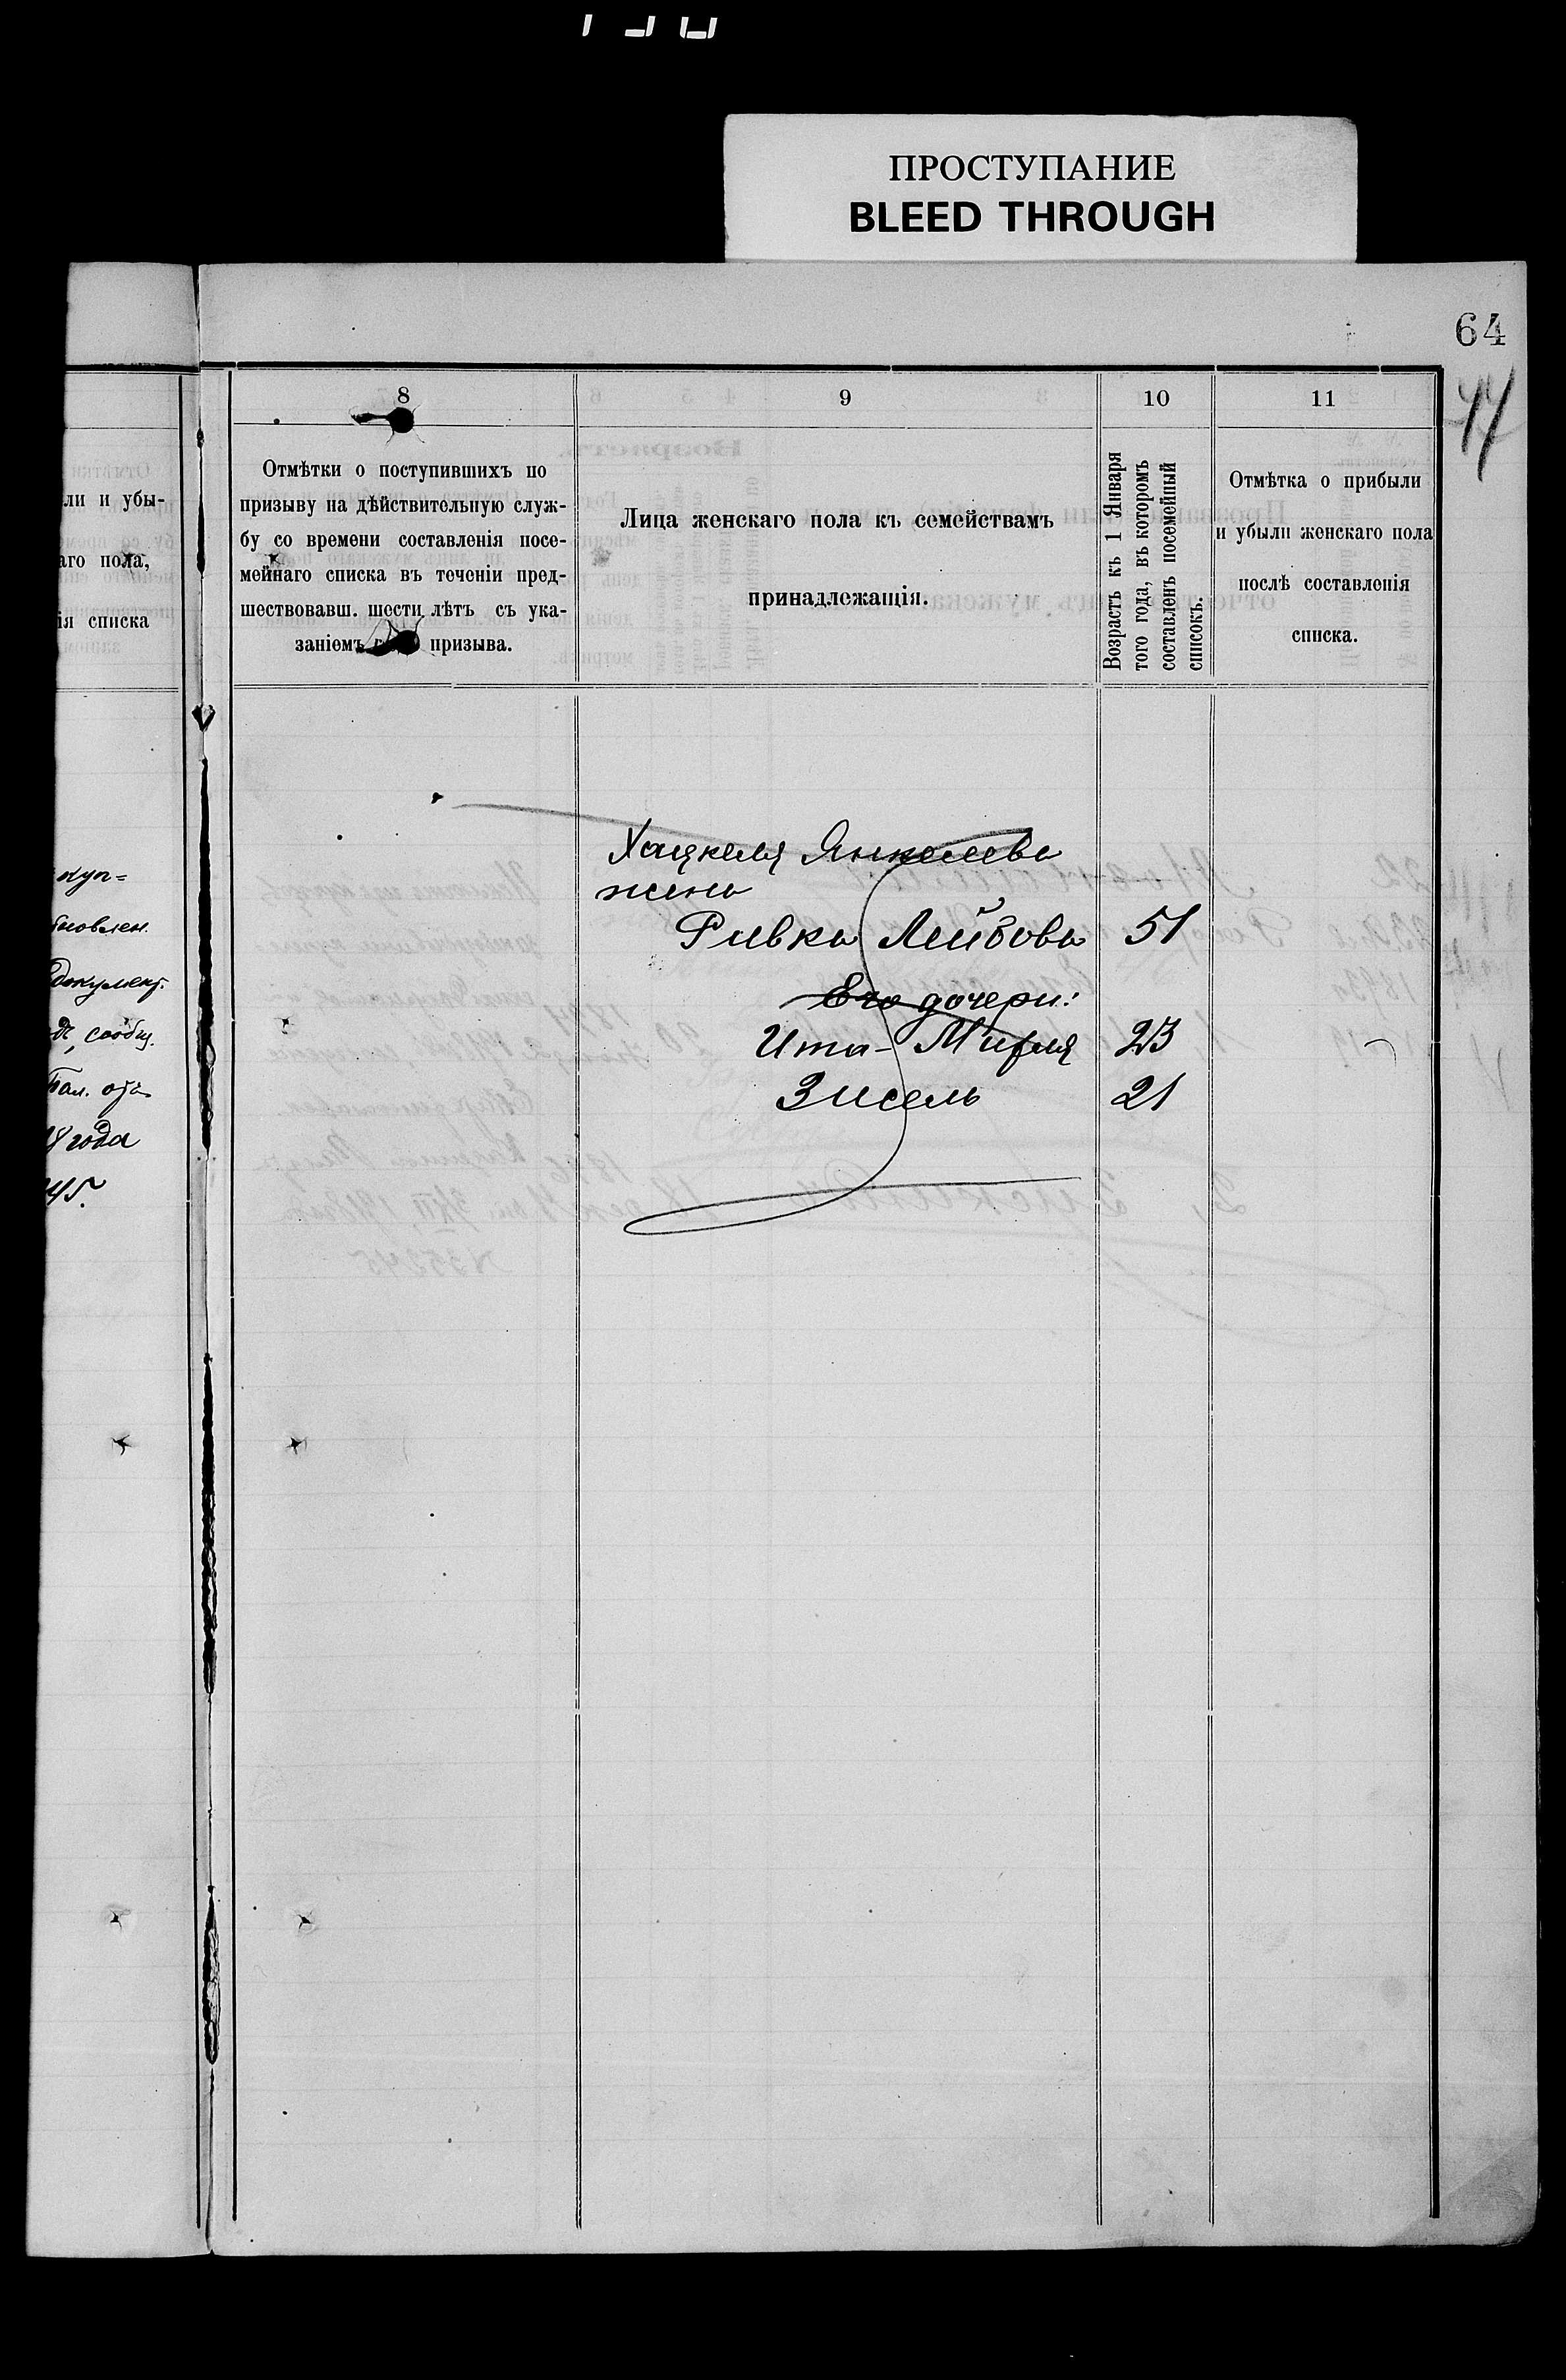 ПРОСТУПАНИЕ
BLEED THROUGH
64
44
ли и убы-
аго пола,
ія списка
куп-
документ.
сообщ.
года
45.
8
Отмѣтки о поступившихъ по
призыву на дѣйствительную служ-
бу со времени составленія посе-
мейнаго списка въ теченіи пред-
шествовавш. шести лѣтъ съ ука-
заніемъ призыва.
9
Лица женскаго пола къ семействамъ
принадлежащія.
10
Возрастъ къ 1 Января
того года, въ которомъ
составленъ посемейный
списокъ.
11
Отмѣтка о прибыли
и убыли женскаго пола
послѣ составленія
списка.
Хацкеля Янкелева
жена
Ривка Лейбова 51
Его дочери:
Ита-Мирля 23
Зисель 21